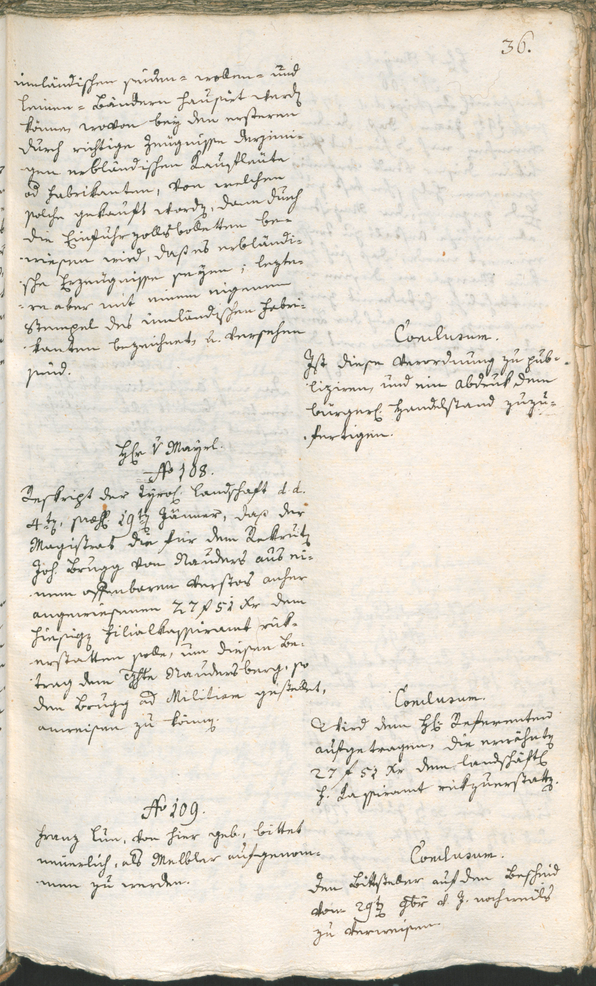 36.
inländischen seiden- wollen- und
leinen- Bändern hausirt werdz
könne, wovon bey den ersteren
durch richtige Zeugnisse derjeni-
gen erbländischen Kaufleute
od Fabrikanten, von welchen
solche gekauft wordz, dann durch
die Einfuhrzollsbolletten be-
wiesen wird, daß es erbländi-
sche Erzeugnisse seyen; lezte-
re aber mit einem eigenen
Stempel des inländischen Fabri-
kanten bezeichnet, u. versehen
sind.
Conclusum.
Ist diese Verordnung zu pub-
liziren, und ein Abdruk dem
bürgerl. Handelstand zuzu-
fertigen.
Hr v Mayrl.
No 108.
Reskript der tyrol. Landschaft d. d.
4tz, 19tz Jänner, daß der
Magistrat die für den Rekrutz
Joh. Brugg von Nauders aus ei-
nem offenbaren Verstos anher
angewiesenen 27 f 51 Xr dem
hiesigz Filialkassieramt rük-
erstatten solle, um diesen Be-
trag dem Naudersberg, so
den Brugg ad Militiam gestellet,
anweisen zu könnz.
Conclusum.
Wird dem H. Referenten
aufgetragen, die erwähntz
27 f 51 Xr dem landschäftl
H. Kassieramt rükzuerstattz.
No 109.
Franz Lun, von hier geb., bittet
neuerlich, als Melbler aufgenom-
men zu werden.
Conclusum.
Den Bittsteller auf den Bescheid
vom 29tz 9br v. J. nochmals
zu verweisen